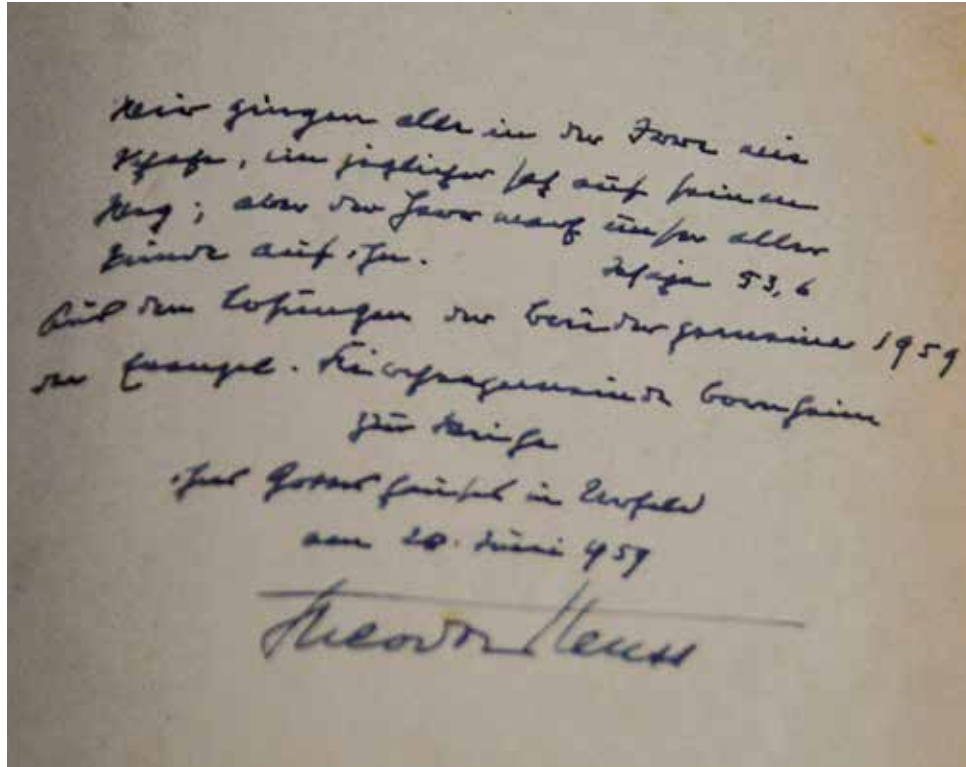 Wir gingen alle in der Irre wie
Schafe, ein jeglicher sah auf seinen
Weg; aber der Herr warf unser aller
Sünde auf ihn. Jesaja 53,6
Aus den Losungen der Brüdergemeine 1959
der Evangel. Kirchengemeinde Bornheim
zur Weihe
ihres Gotteshauses in Urfeld
am 20. Juni 1959
Theodor Heuss